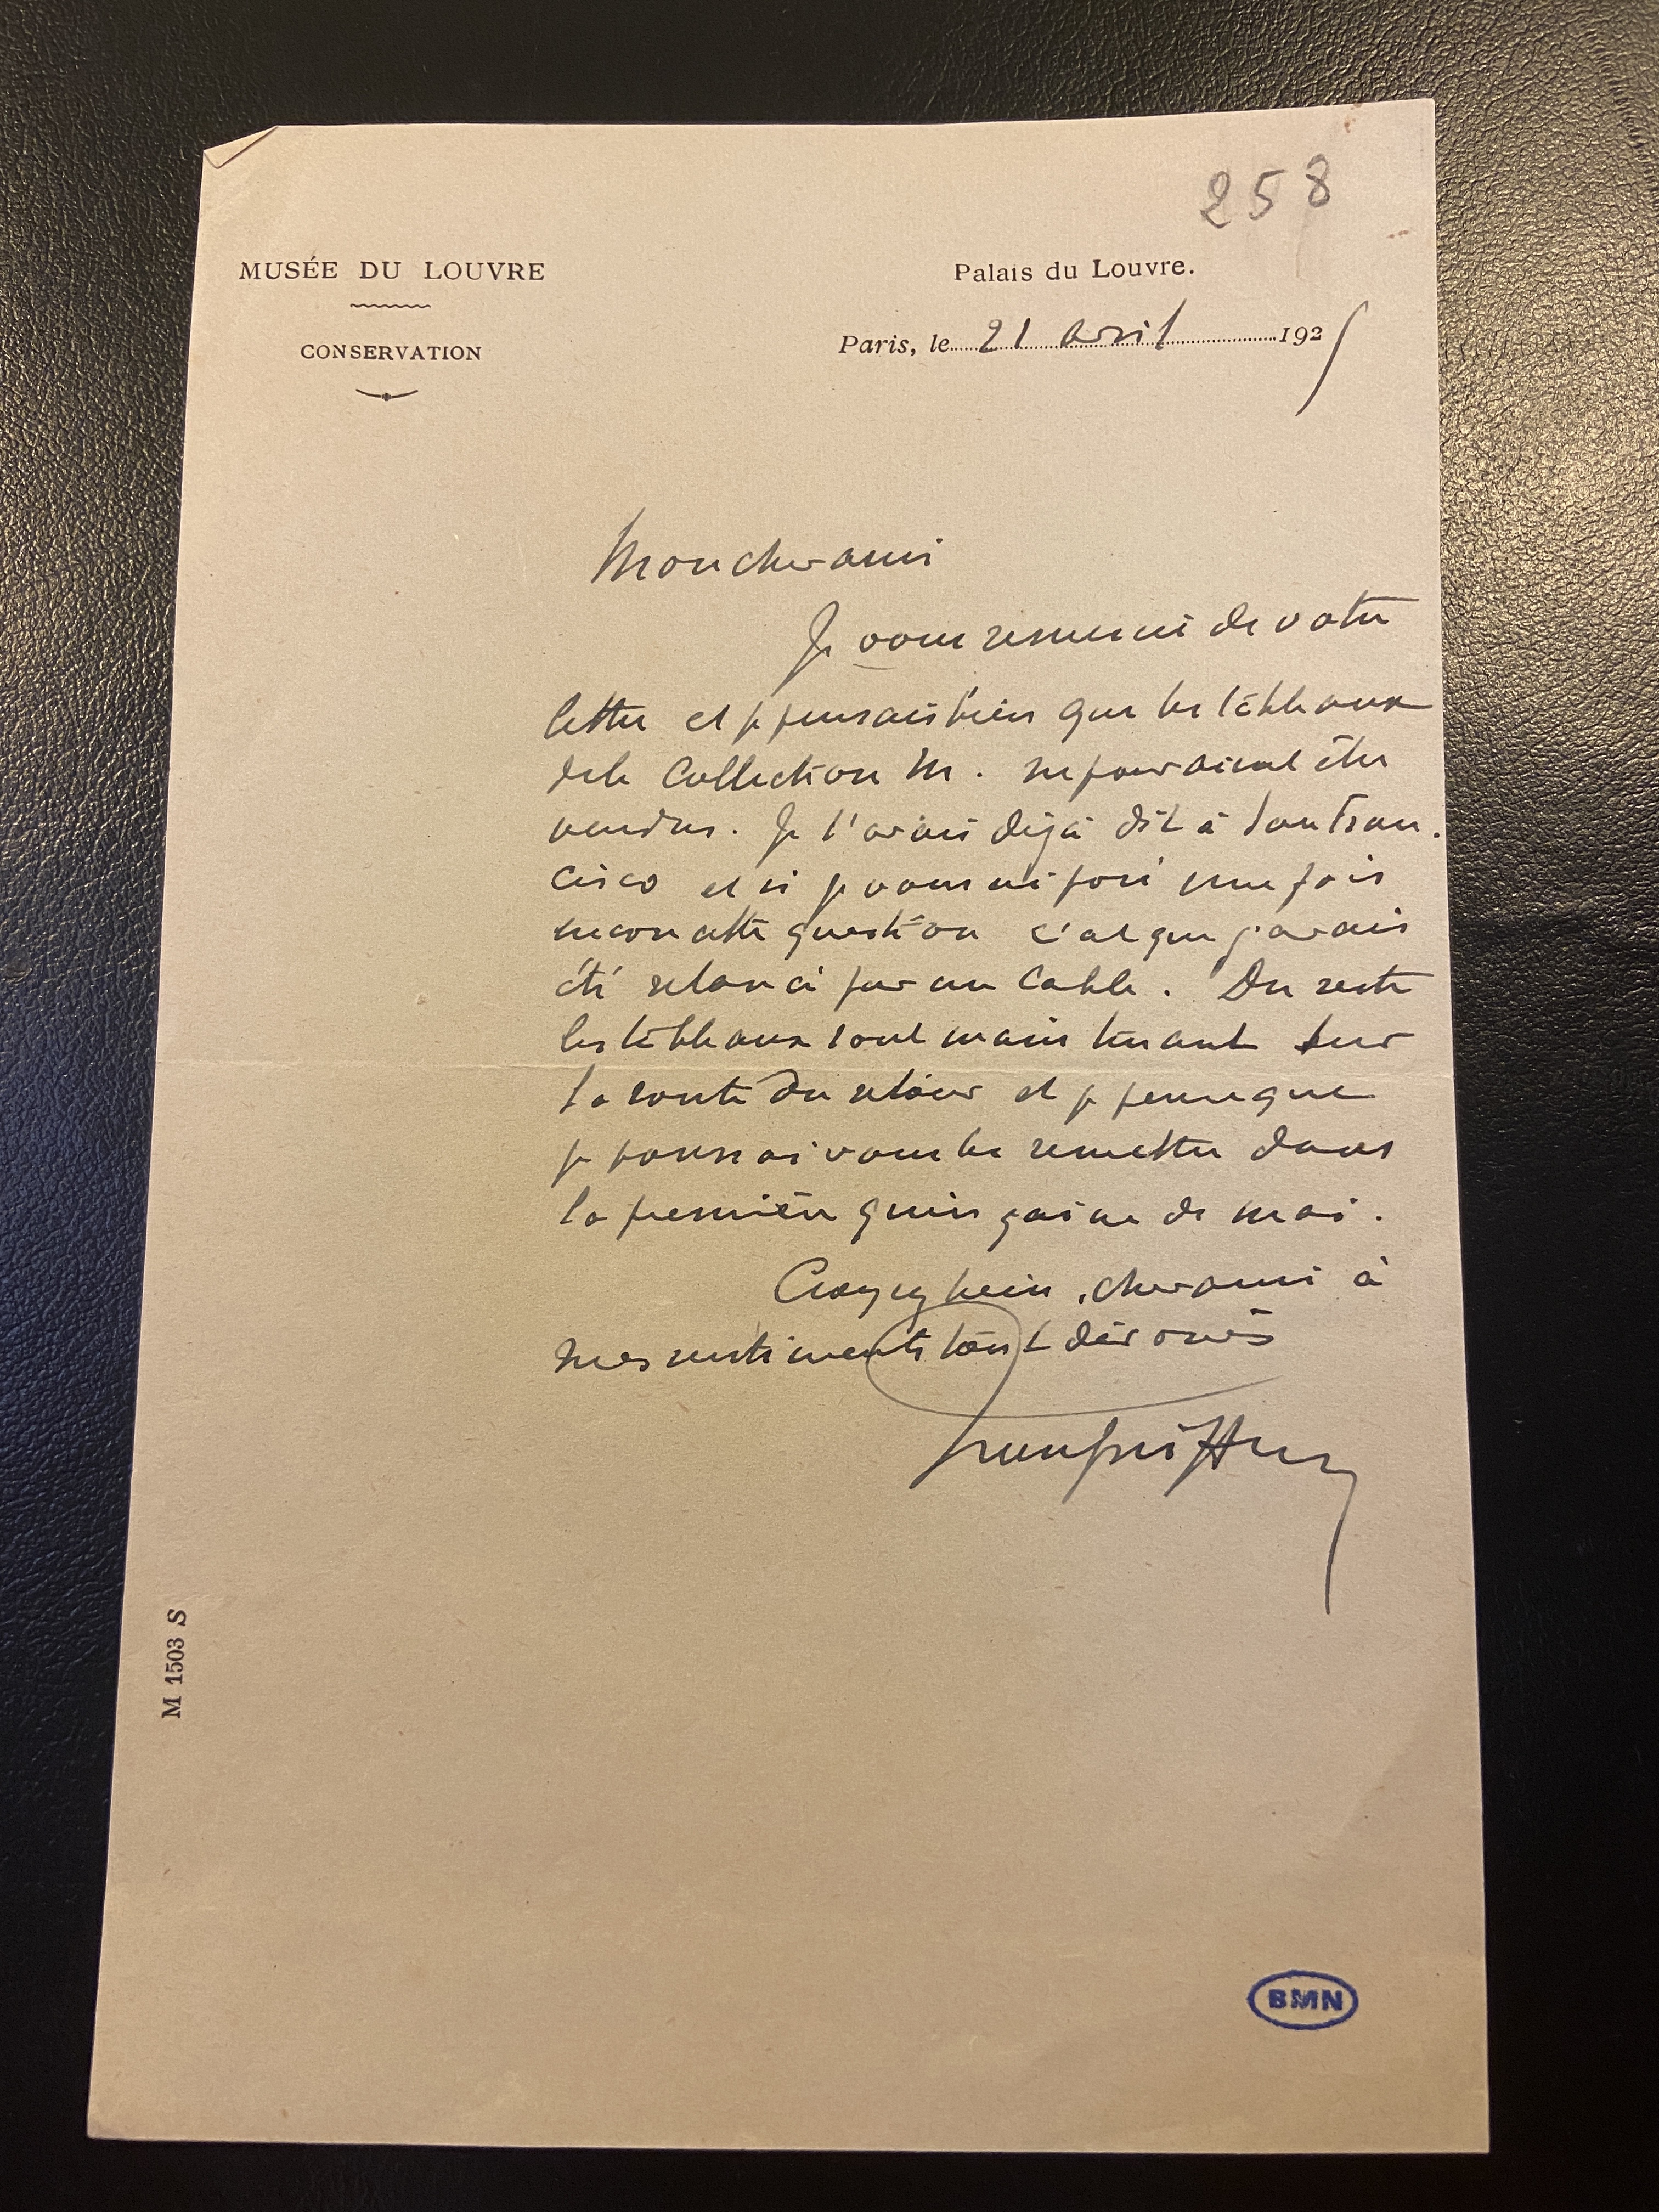 258
MUSÉE DU LOUVRE
CONSERVATION
Palais du Louvre.
Paris, le 21 avril 1925
Mon cher ami
Je vous remercie de votre
lettre et je pensais bien que les tableaux
de la Collection M. ne pouvaient être
vendus. Je l'avais déjà dit à San Fran.
cisco et si je vous ai posé une fois
encore cette question c'est que j'avais
été relancé par un cable. Du reste
les tableaux sont maintenant sur
la route du retour et je pense que
je pourrai vous les remettre dans
la première quinzaine de mai.
Croyez bien, cher ami à
mes sentiments tout dévoués
Jean Guiffrey
M 1503 S
BMN